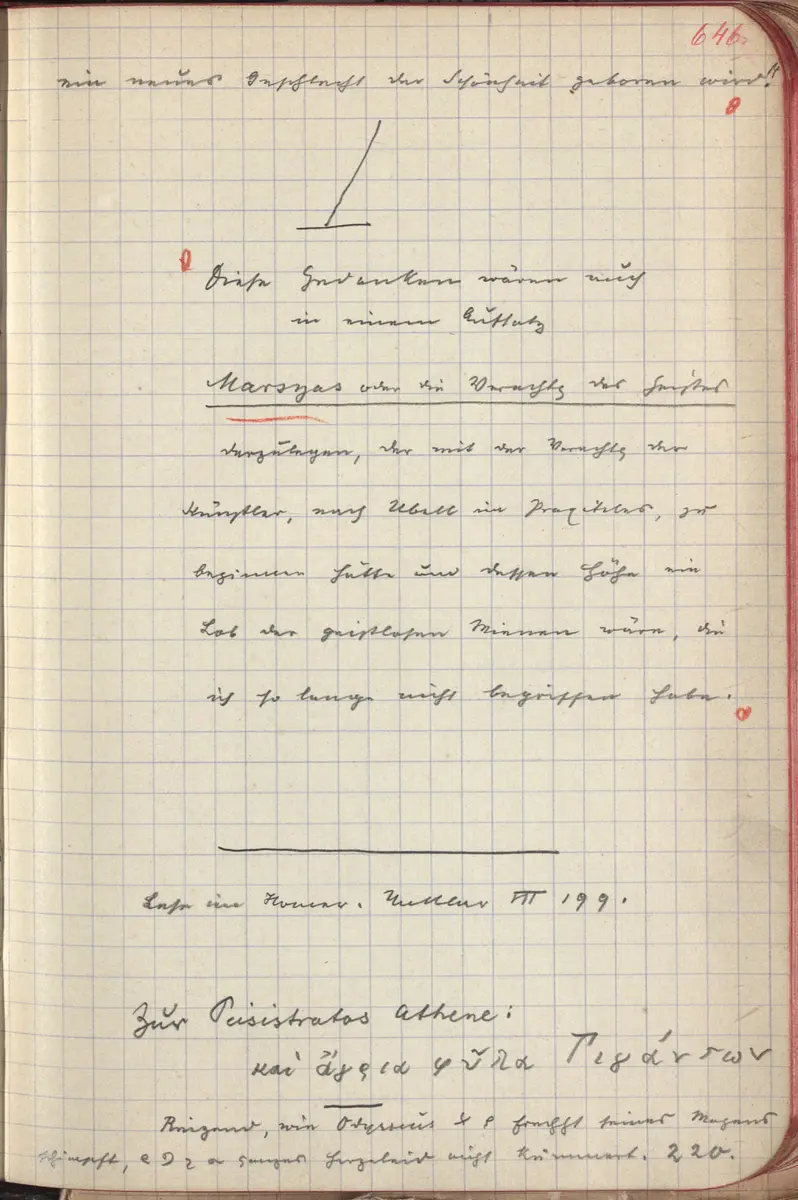 646.
ein neues Geschlecht der Schönheit geboren wird!"
Diese Gedanken wären auch
in einem Aufsatz
Marsyas oder die Verachtg des Geistes
darzulegen, der mit der Verachtg der
Künstler, nach Ubell im Praxiteles, zu
beginnen hätte und dessen Höhe ein
Lob der geistlosen Mienen wäre, die
ich so lange nicht begriffen habe.
Lese im Homer. III 199.
Zur Peisistratos Athene:
καὶ ἄγρια φῦλα Γιγάντων
Reizend, wie Odysseus seines Magens
schimpft, ganzes Herzeleid nicht kümmert. 220.